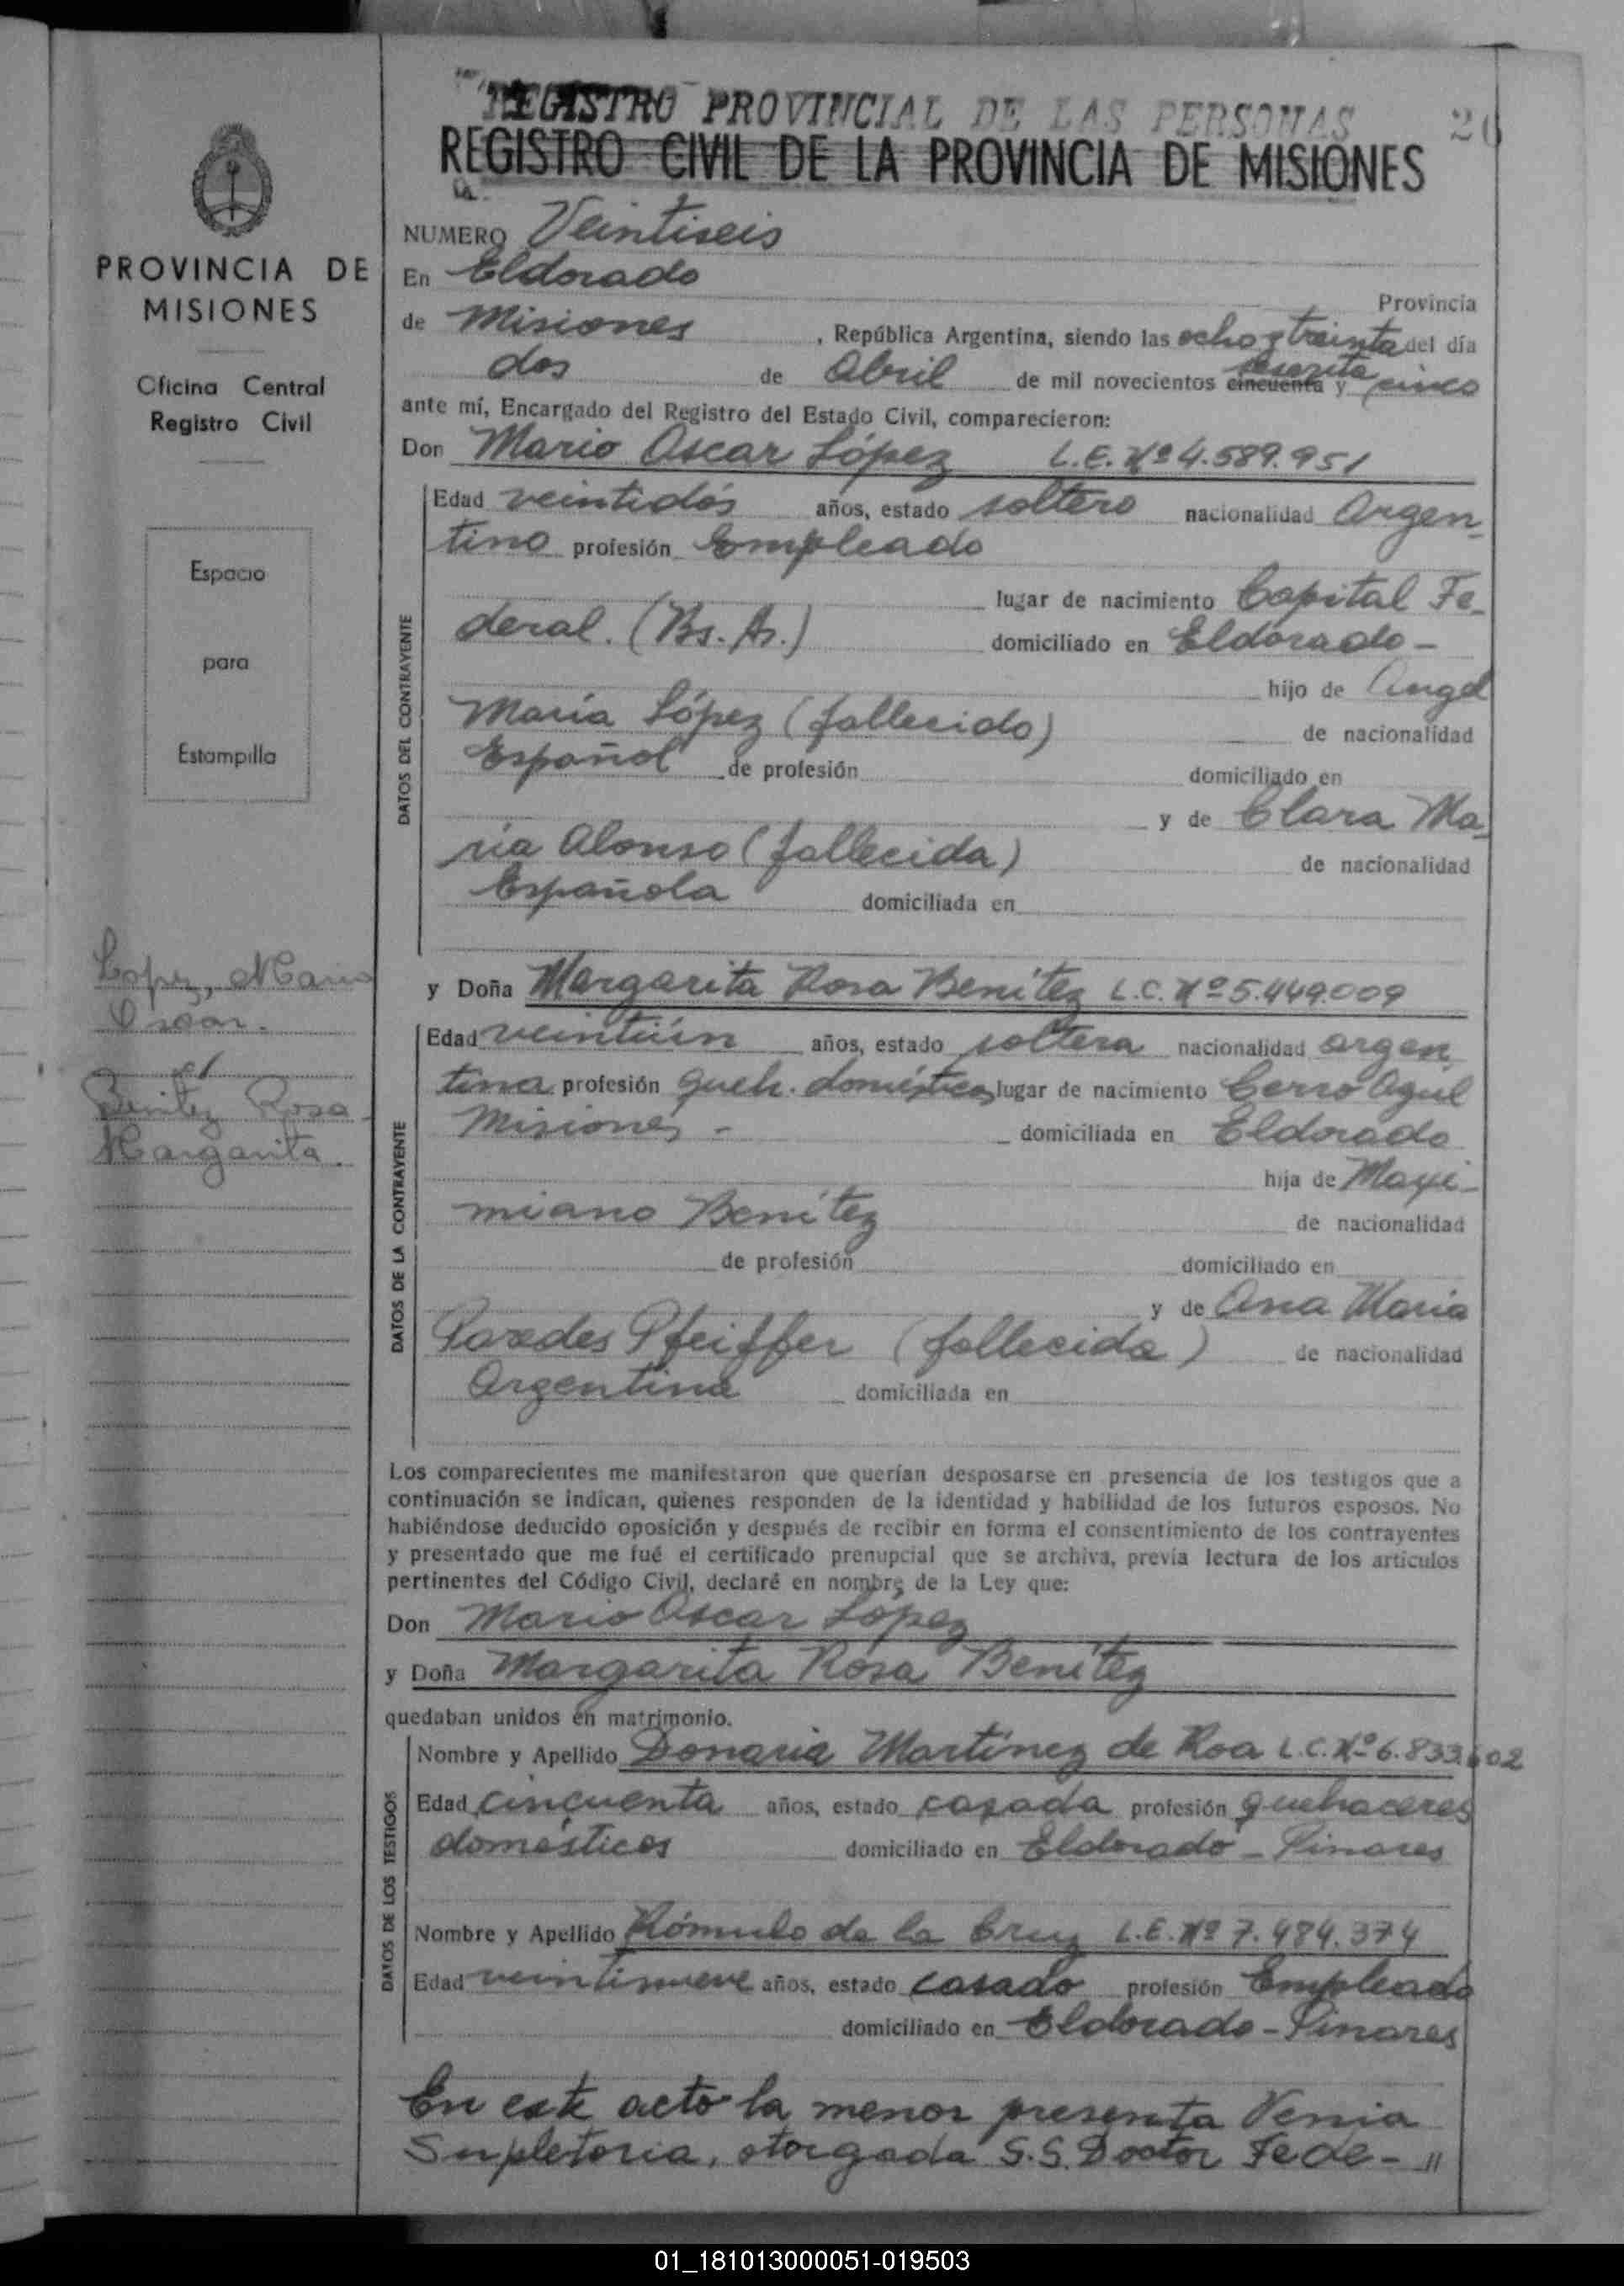 REGISTRO PROVINCIAL DE LAS PERSONAS
REGISTRO CIVIL DE LA PROVINCIA DE MISIONES
26
PROVINCIA DE
MISIONES
Oficina Central
Registro Civil
Espacio
para
Estampilla
Lopez, Mario
Oscar.
Benitez Rosa
Margarita.
NUMERO Veintiseis
En Eldorado
Provincia
de Misiones, República Argentina, siendo las ocho y treinta del día
dos de Abril de mil novecientos cincuenta sesenta y cinco
ante mí, Encargado del Registro del Estado Civil, comparecieron:
Don Mario Oscar López L.E. Nº 4.589.951
DATOS DEL CONTRAYENTE
Edad veintidós años, estado soltero nacionalidad Argen-
tino profesión Empleado
lugar de nacimiento Capital Fe-
deral. (Bs. As.) domiciliado en Eldorado -
hijo de Angel
María López (fallecido) de nacionalidad
Español de profesión domiciliado en
y de Clara Ma-
ría Alonso (fallecida) de nacionalidad
Española domiciliada en
y Doña Margarita Rosa Benítez L.C. Nº 5.449.009
DATOS DE LA CONTRAYENTE
Edad veintiún años, estado soltera nacionalidad argen
tina profesión queh. domésticos lugar de nacimiento Cerro Azul
Misiones - domiciliada en Eldorado
hija de Maxi-
miano Benítez de nacionalidad
de profesión domiciliado en
y de Ana María
Paredes Pfeiffer (fallecida) de nacionalidad
Argentina domiciliada en
Los comparecientes me manifestaron que querían desposarse en presencia de los testigos que a
continuación se indican, quienes responden de la identidad y habilidad de los futuros esposos. No
habiéndose deducido oposición y después de recibir en forma el consentimiento de los contrayentes
y presentado que me fué el certificado prenupcial que se archiva, previa lectura de los artículos
pertinentes del Código Civil, declaré en nombre de la Ley que:
Don Mario Oscar López
y Doña Margarita Rosa Benítez
quedaban unidos en matrimonio.
DATOS DE LOS TESTIGOS
Nombre y Apellido Donaria Martínez de Roa L.C. Nº 6.833.602
Edad cincuenta años, estado casada profesión quehaceres
domésticos domiciliado en Eldorado - Pinares
Nombre y Apellido Rómulo de la Cruz L.E. Nº 7.484.374
Edad veintinueve años, estado casado profesión Empleado
domiciliado en Eldorado - Pinares
En este acto la menor presenta Venia
Supletoria, otorgada S.S. Doctor Fede- //
01_181013000051-019503